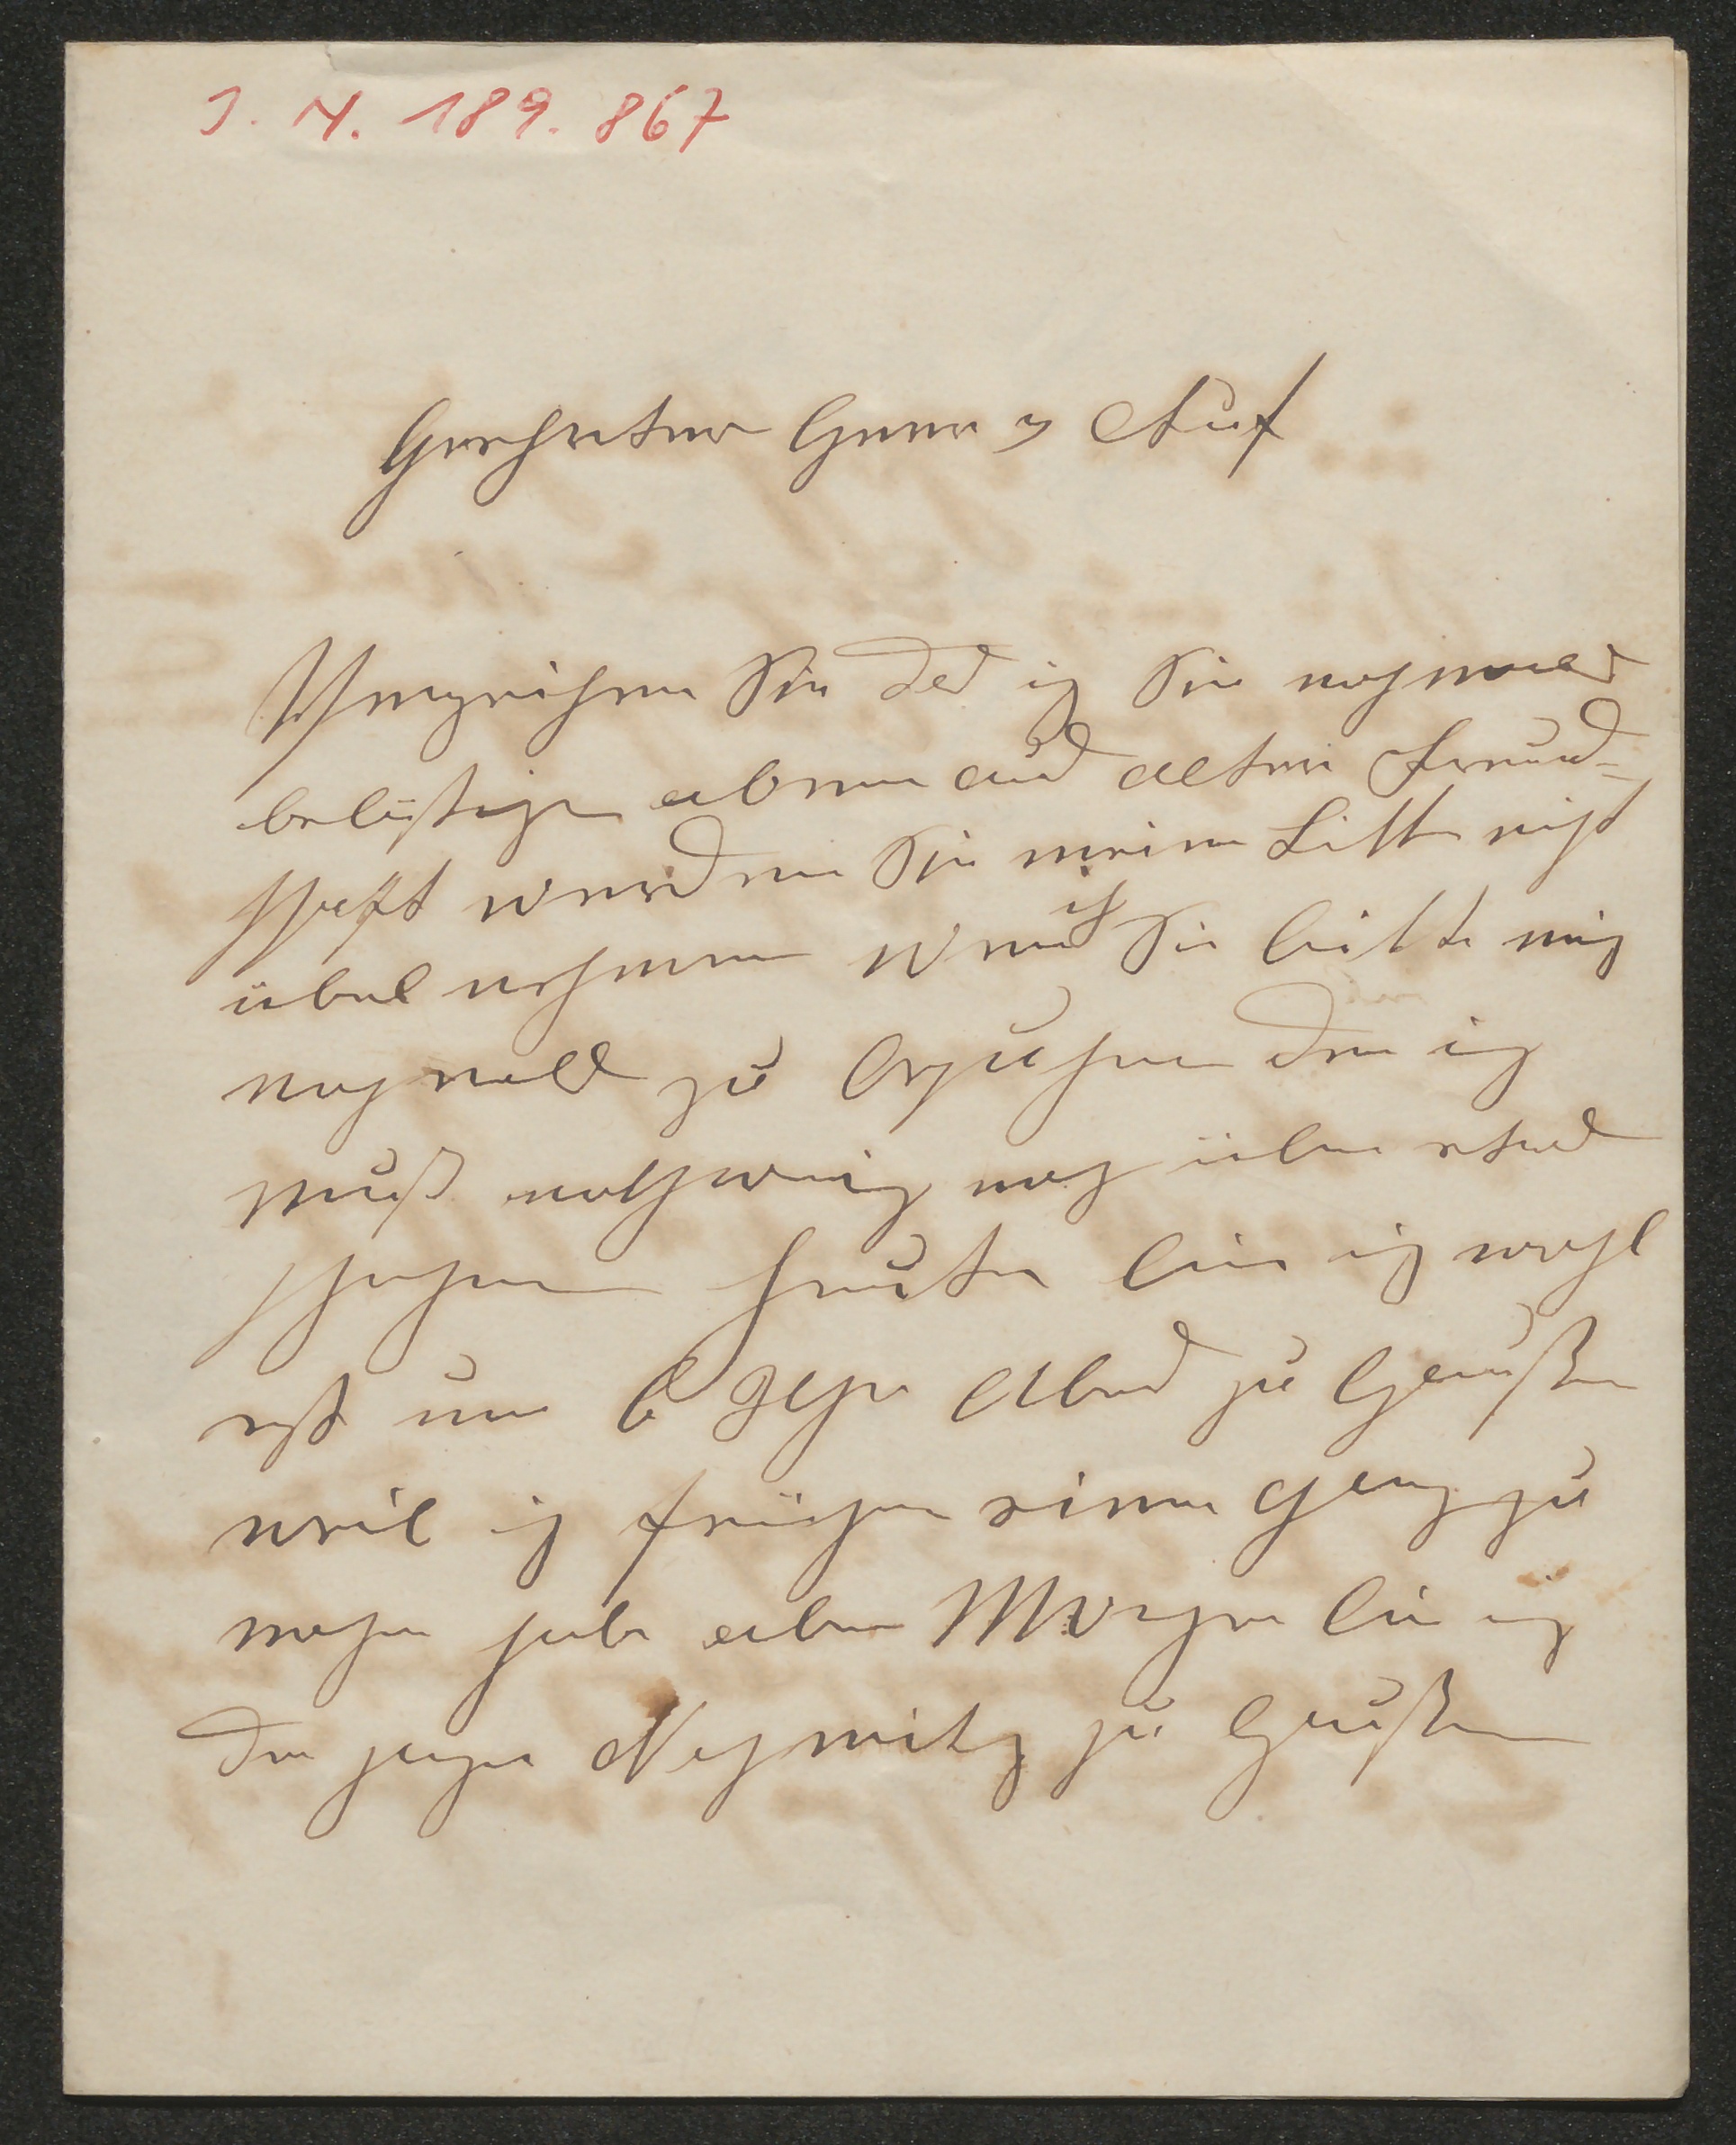 I. N. 189.867
Geehrter Herr v
Verzeihen Sie das ich Sie nochmals
belästige aber aus alter Freund=
schaft werden Sie meine Bitte nicht
übel nehmen wenn ich Sie bitte mich
nochmals zu besuchen den ich
muß nothwenig noch über etwas
sprechen heute bin ich wohl
erst um 6 Uhr Abend zu Hause
weil ich früher einen Gang zu
machen habe aber Morgen bin ich
den ganzen Nachmittg zu Hause